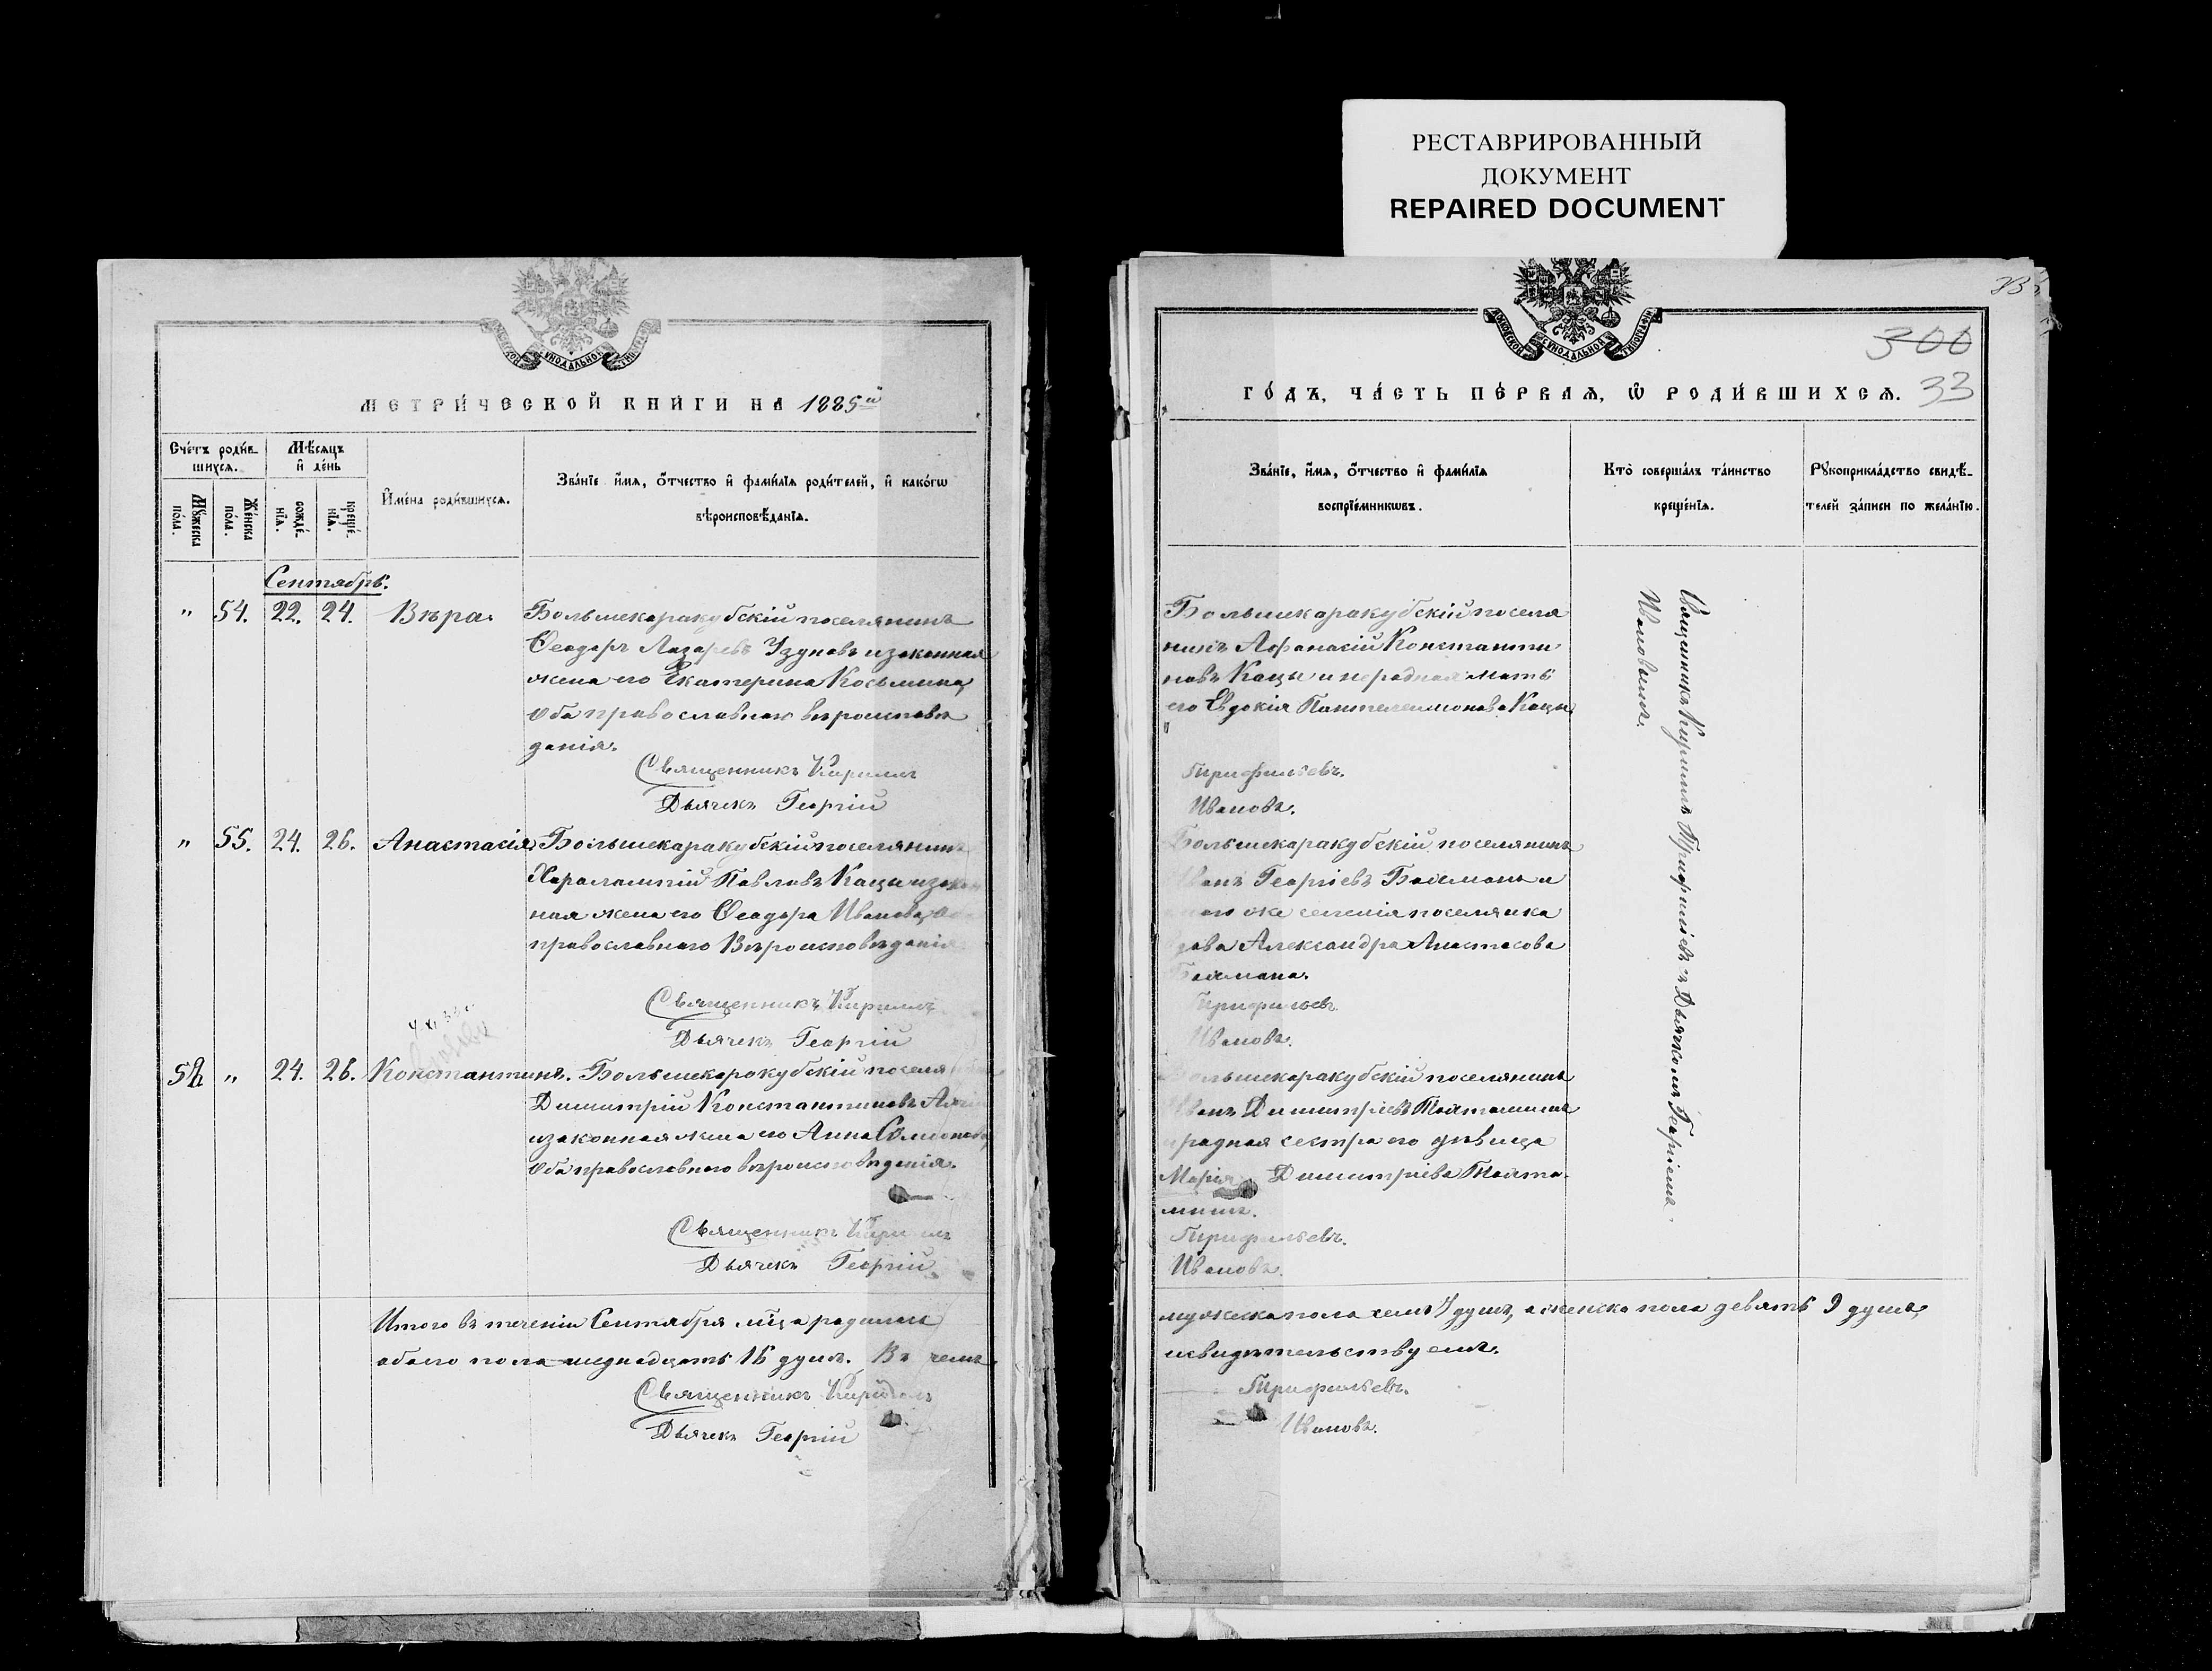 РЕСТАВРИРОВАННЫЙ
ДОКУМЕНТ
REPAIRED DOCUMENT
МОСКОВСКОЙ СѴНОДАЛЬНОЙ ТИПОГРАФІИ
МЕТРИ́ЧЕСКОЙ КНИ́ГИ НА 1885й
Сче́тъ роди́в-
шихся.
Мѣ́сяцъ
и҆ де́нь
Мꙋ́жеска
по́ла.
Же́нска
по́ла.
рожде́-
нїя.
креще́-
нїя.
И҆мена̀ роди́вшихся.
Зва́нїе и҆́мя, ѻ҆́тчество и҆ фами́лїя роди́телей, и҆ како́гѡ
вѣроисповѣ́данїя.
Сентябрь.
" 54. 22. 24. Вѣра. Большекаракубскій поселянинъ
Ѳеодоръ Лазаревъ Узуновъ и законная
жена его Екатерина Косьмина,
оба православнаго вѣроисповѣ
данія.
Священникъ Кириллъ
Дьячекъ Георгій
" 55. 24. 26. Анастасія. Большекаракубскій поселянинъ
Харалампій Павловъ Кацы и закон
ная жена его Ѳеодора Иванова,
православнаго Вѣроисповѣданія
Священникъ Кириллъ
Дьячекъ Георгій
" 24. 26. Константинъ. Большекаракубскій поселя
Димитрій Константиновъ
и законная жена его Анна
оба православнаго вѣроисповѣданія.
Священникъ Кириллъ
Дьячекъ Георгій
Итого въ теченіи Сентября м̃ца родилось
обоего пола шеснадцать 16 душъ. Въ чемъ
Священникъ Кириллъ
Дьячекъ Георгій
МОСКОВСКОЙ СѴНОДАЛЬНОЙ ТИПОГРАФІИ
300
33
ГО́ДЪ, ЧА́СТЬ ПЕ́РВАЯ, Ѽ РОДИ́ВШИХСЯ.
Зва́нїе, и҆́мя, ѻ҆́тчество и҆ фами́лїя
воспрїе́мникѡвъ.
Кто̀ соверша́лъ та́инство
креще́нїя.
Рꙋкоприкла́дство свидѣ́-
телей за́писи по жела́нїю.
Большекаракубскій поселя
нинъ Афанасій Константи
новъ Кацы и неродная мать
его Евдокія Пантелеимонова Кацы
Трифильевъ.
Ивановъ.
Большекаракубскій поселянинъ
Иванъ Георгіевъ и
того же селенія поселянка
вдова Александра Анастасова
Трифильевъ.
Ивановъ.
Большекаракубскій поселянинъ
Иванъ Димитріевъ
и родная сестра его дѣвица
Марія Димитріева
Трифильевъ.
Ивановъ.
Священникъ Кириллъ Трифильевъ съ Дьячкомъ Георгіемъ
Ивановымъ.
мужеска пола семь 7 душъ, а женска пола девять 9 душъ,
свидѣтельствуемъ.
Трифильевъ.
Ивановъ.